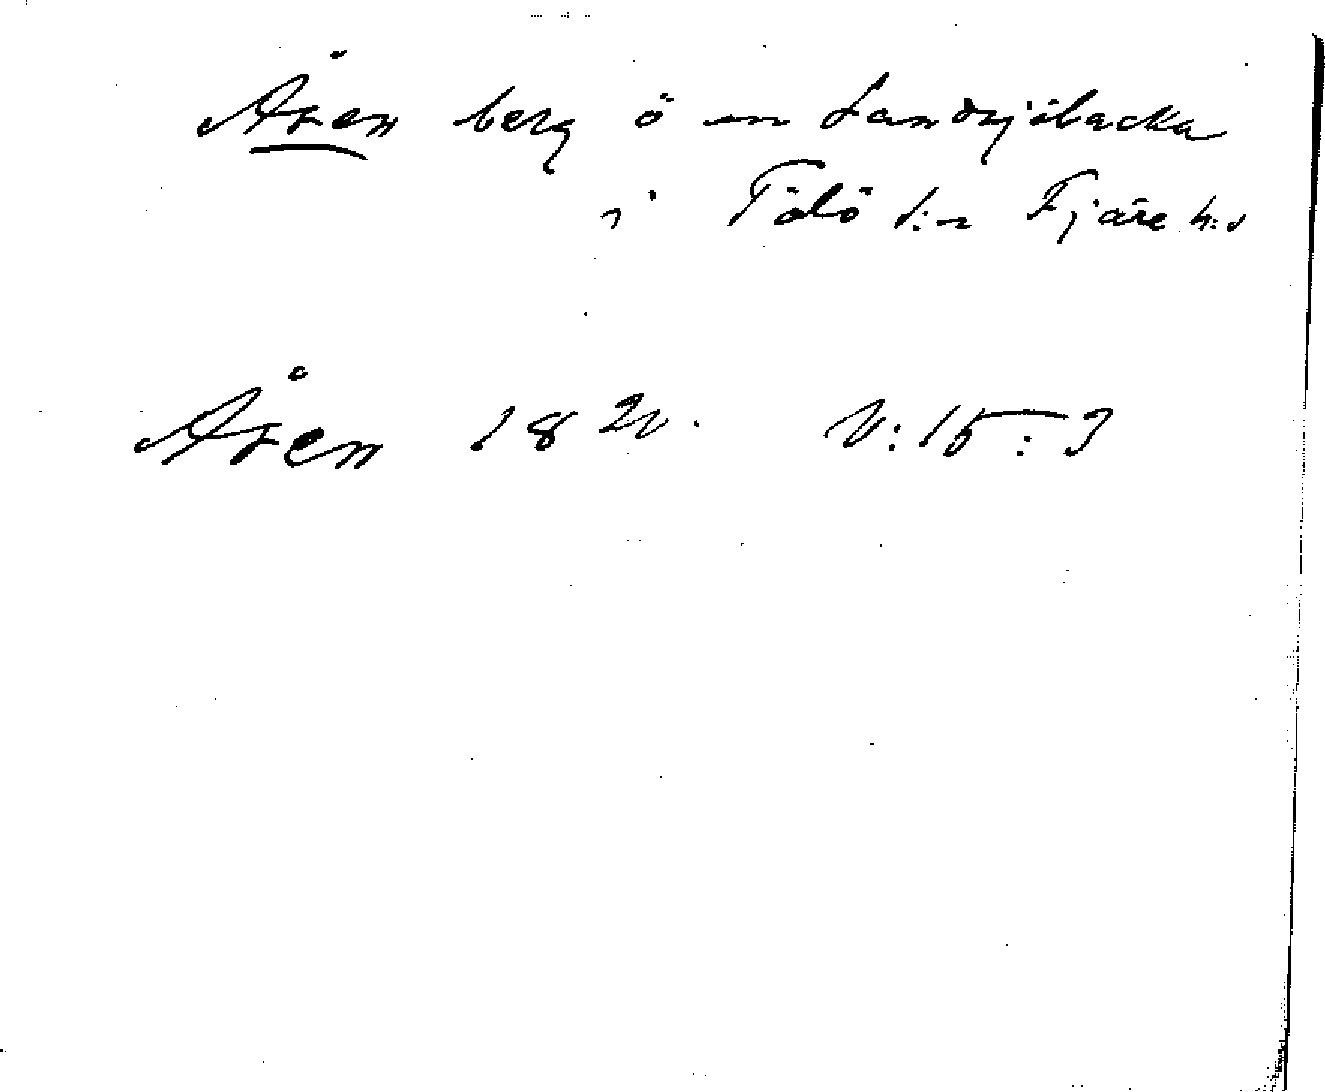 Åsen berg ö om Sandsjöbacka
i Tölö s:n Fjäre h:d
Åsen 18 20. V:15:3